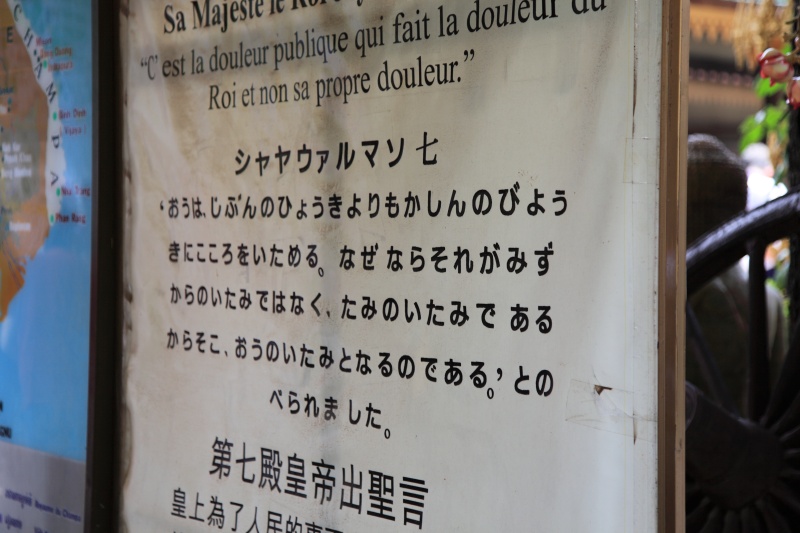 Sa Majesté le Roi
“C’est la douleur publique qui fait la douleur du
Roi et non sa propre douleur.”
シャヤウァルマソ七
‘おうは、じぶんのひょうきよりもかしんのびよう
きにこころをいためる。なぜならそれがみず
からのいたみではなく、たみのいたみである
からそこ、おうのいたみとなるのである。’との
べられました。
第七殿皇帝出聖言
皇上為了人民的
CHAMPA